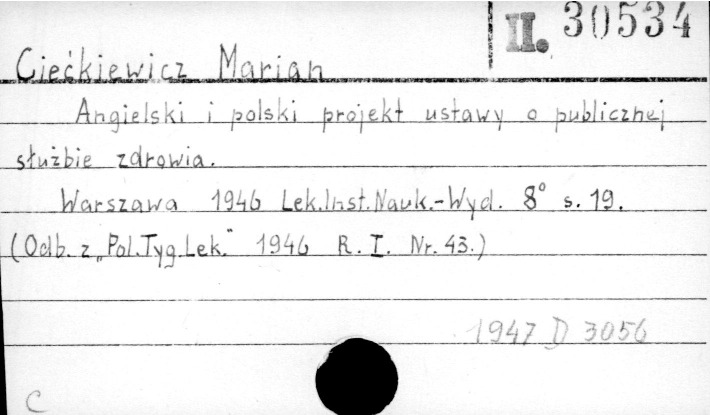 II. 30534
Ciećkiewicz Marian
Angielski i polski projekt ustawy o publicznej
służbie zdrowia.
Warszawa 1946 Lek.Inst.Nauk.-Wyd. 8° s. 19.
(Odb. z „Pol.Tyg.Lek." 1946 R. I. Nr. 43.)
1947 D 3056
C